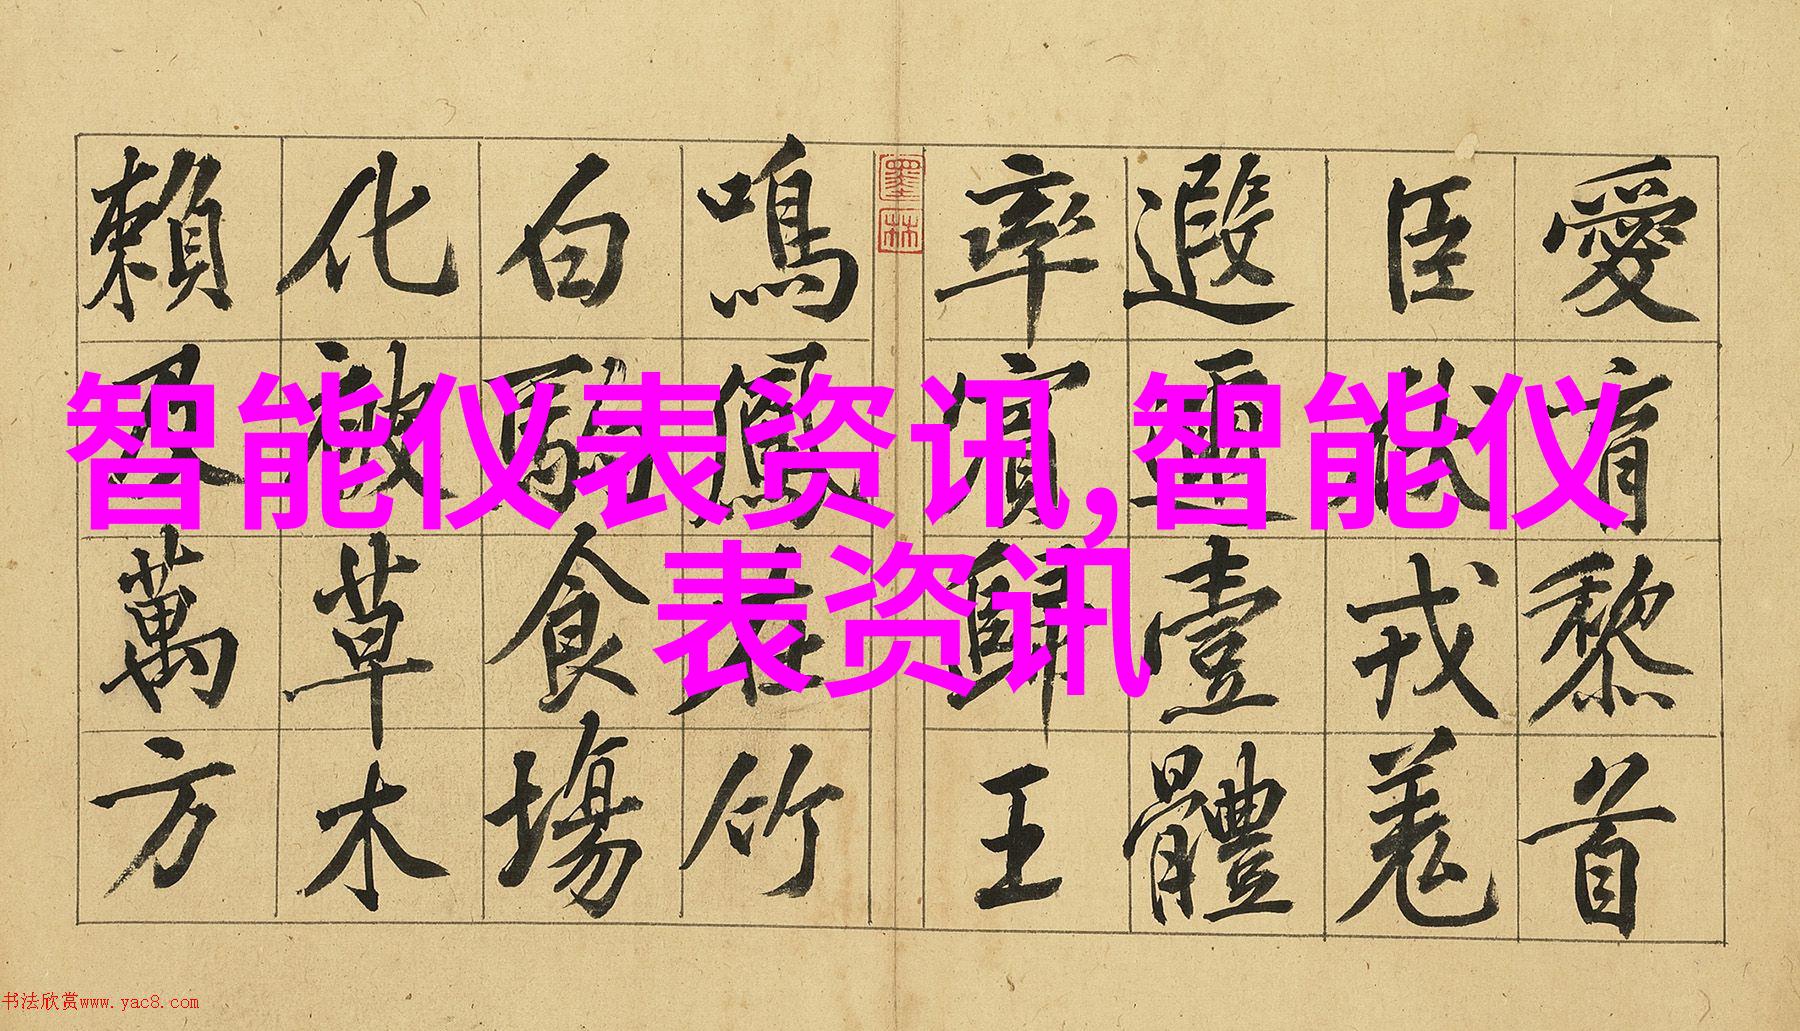 智能仪表资讯,智能仪
表资讯
愛育黎首
臣伏戎羌
遐邇壹體
率賓歸王
墨林
鳴鳳在竹
白駒食場
化被草木
賴及萬方
书法欣赏www.yac8.com